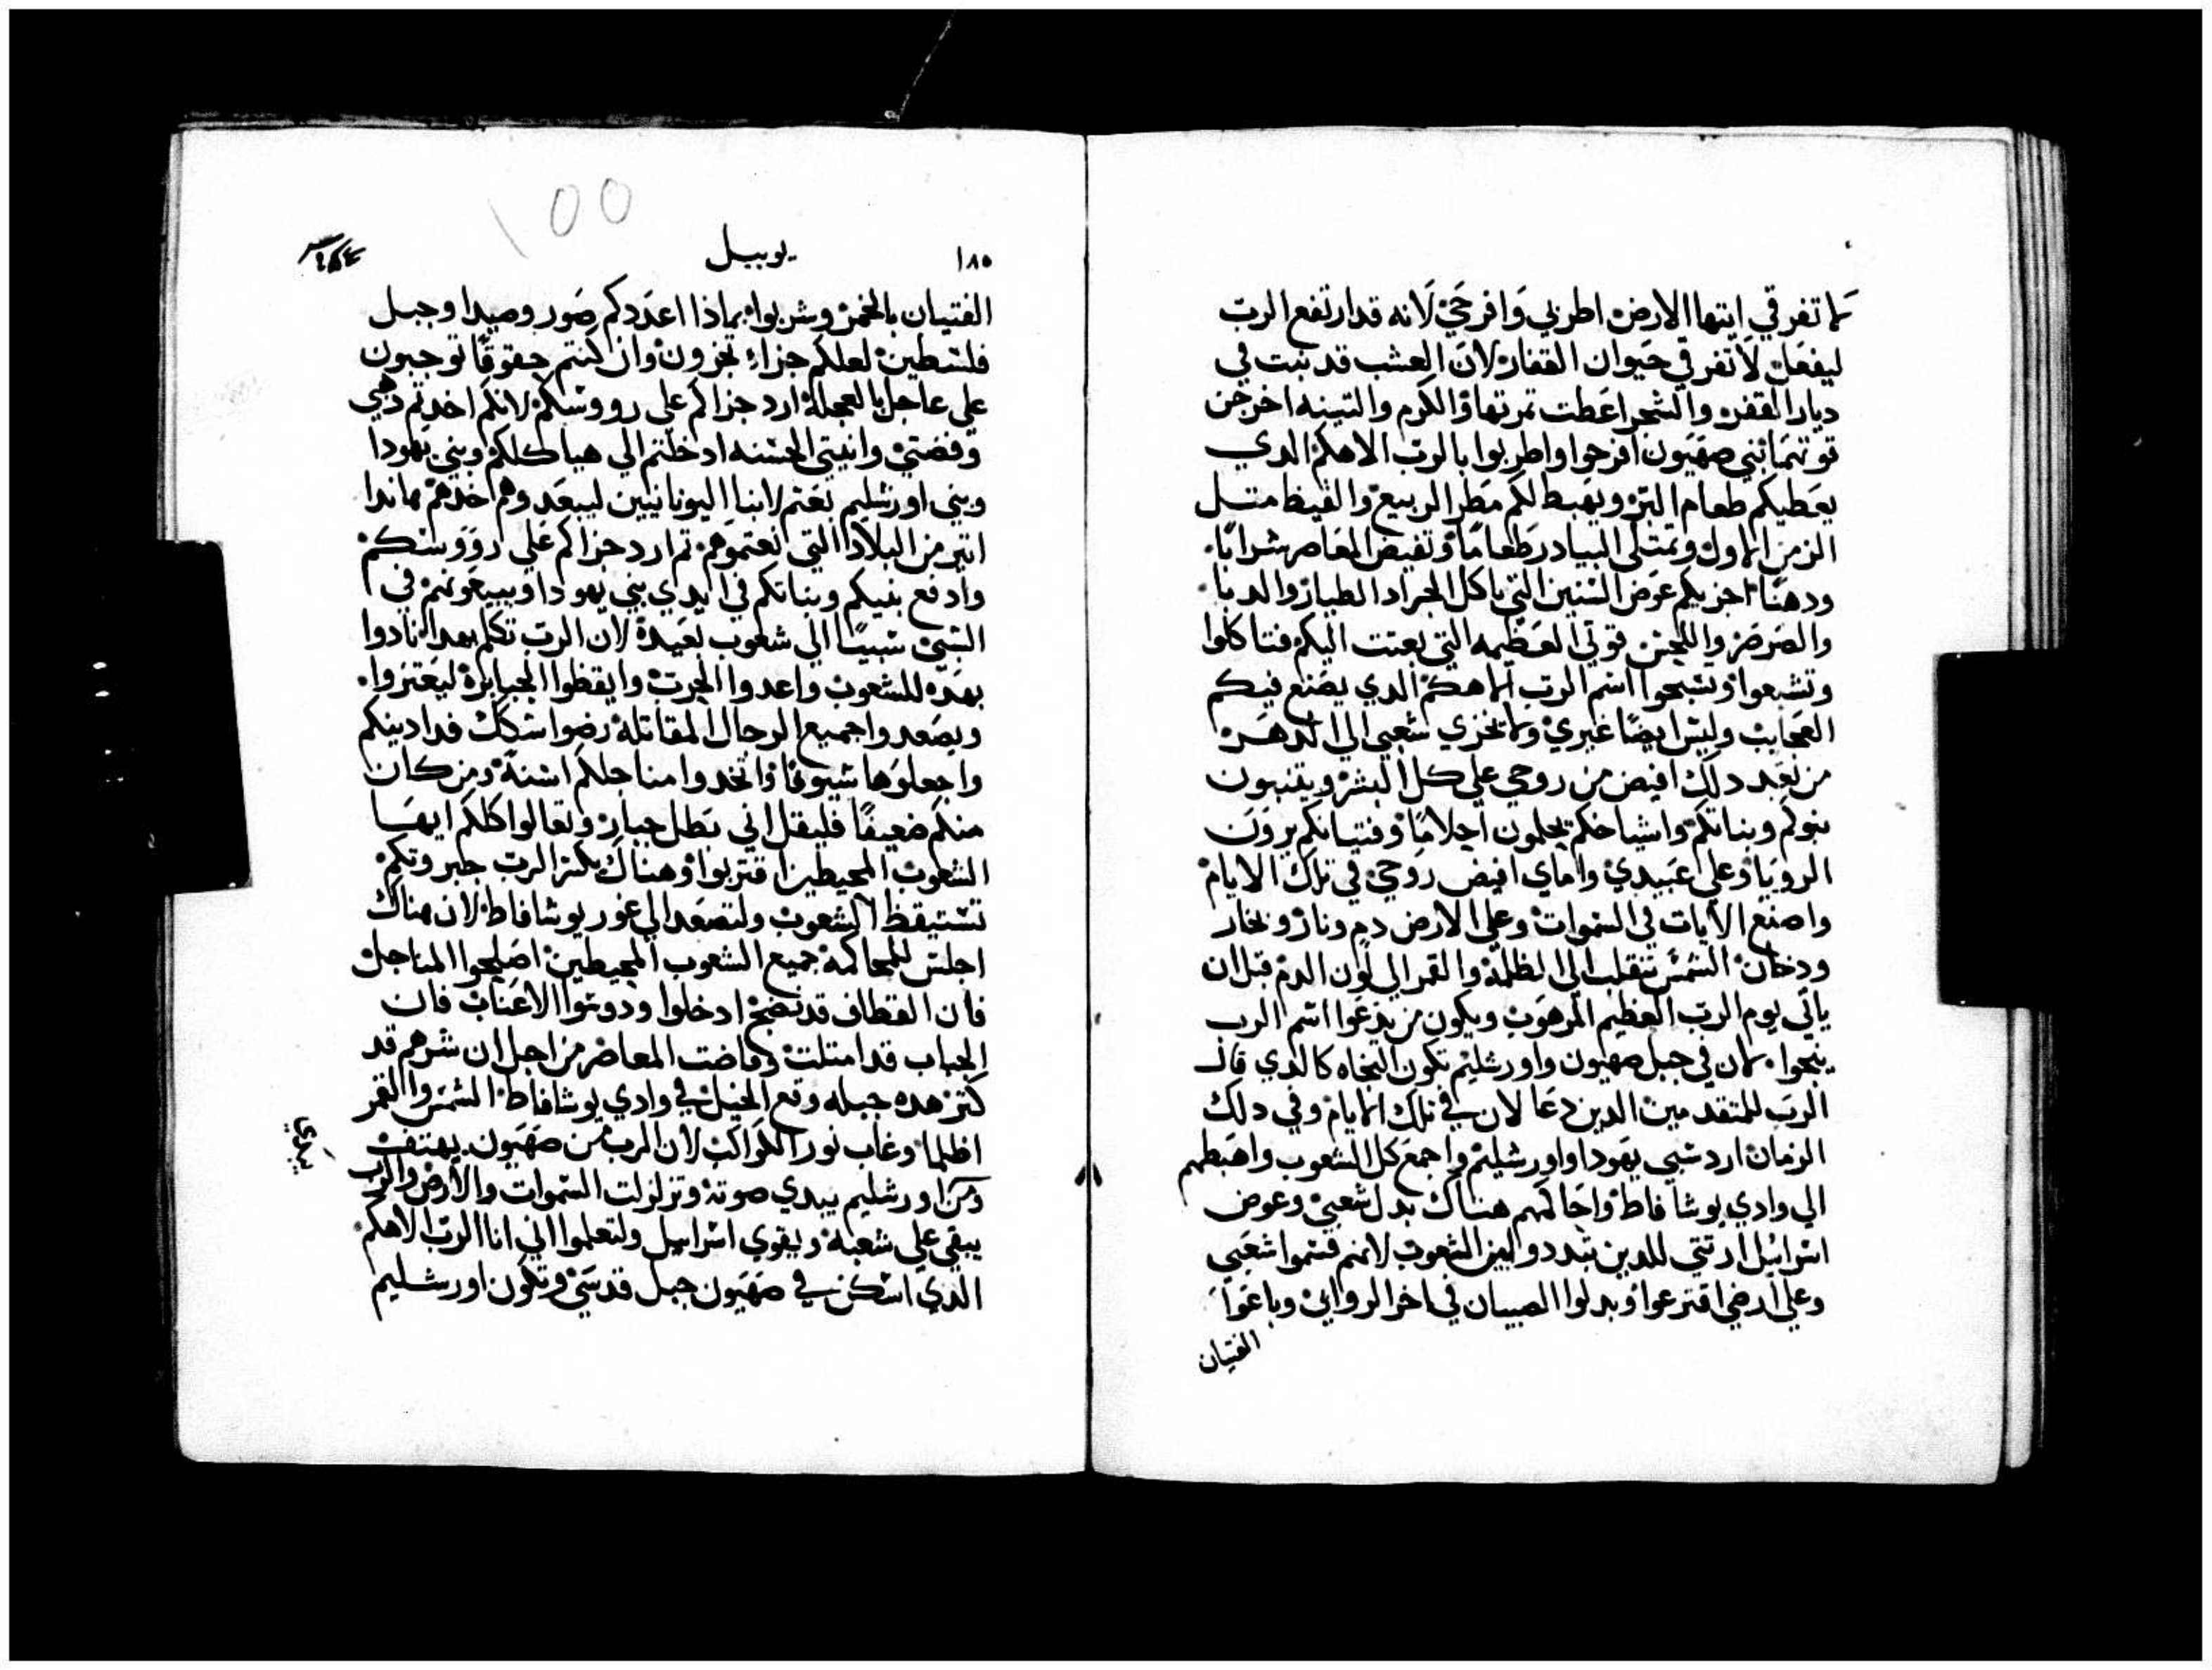 لا تفرقي ايتها الارض اطربي وافرحي لانه قد ارتفع الرب
ليفعل لا تفرقي حيوان القفار لان العشب قد نبت في
ديار القفر والشجر اعطت تمرتها والكرم والتينه اخرجن
قوتهما بني صهيون افرحوا واطربوا بالرب الاهكم الدي
يعطيكم طعام البر ويهبط لكم مطر الربيع والقيظ متل
الزمن الاول وتمتلي البيادر طعاما وتفيض المعاصر شرابا
ودهنا اجزيكم عوض السنين التي ياكل الجراد الطيار والدبا
والصرصر واللجين قوتي العظيمه التي بعتت اليكم فتاكلوا
وتشبعوا وتسبحوا اسم الرب الاهكم الدي يصنع فيكم
العجايب وليس ايضا غيري ولا يخزي شعبي الي الدهر
من بعد دلك افيض من روحي علي كل البشر ويتنبون
بنوكم وبناتكم واشياخكم يحلمون احلاما وفتيانكم يرون
الرويا وعلي عبيدي واماي افيض روحي في تلك الايام
واصنع الايات في السموات وعلي الارض دم ونار وبخار
ودخان الشمس تنقلب الي الظلمة والقمر الي لون الدم قبل ان
ياتي يوم الرب العظيم المرهوب ويكون من يدعوا اسم الرب
ينجوا لان في جبل صهيون واورشليم تكون النجاه كالدي قال
الرب للمتقدمين الدين دعا لان في تلك الايام وفي دلك
الزمان ارد سبي يهودا واورشليم واجمع كل الشعوب واهبطهم
الي وادي يوشافاط واحاكمهم هناك بدل شعبي وعوض
اسراييل ارتتي للدين تبددوا بين الشعوب لانهم قسموا شعبي
وعلي ارضي اقترعوا وبدلوا الصبيان في اخر الرواني وباعوا
الفتيان
١٨٥
يوييل
الفتيان بالخمر وشربوا بماذا اعددكم صور وصيدا وجبل
فلسطين لعلكم جزاء تجزون وان كنتم حقوقا توجبون
علي عاجل بالعجلة ارد جزاكم علي رووسكم لانكم اخدتم دهبي
وفضتي وانيتي الحسنه ادخلتم الي هياكلكم وبني يهودا
وبني اورشليم بعتم لابنا اليونانيين ليبعدوهم اخدهم هاندا
اتير من البلاد التي بعتموهم تم ارد جزاكم علي رووسكم
وادفع بنيكم وبناتكم في ايدي بني يهودا ويبيعونهم في
السبي سبيا الي شعوب بعيدة لان الرب تكلم بهدا نادوا
بهده للشعوب واعدوا الحرب وايقظوا الجبابرة ليعتزوا
ويصعدوا جميع الرجال المقاتلة رضوا سكك فدادينكم
واجعلوها سيوفا واتخدوا مناجلكم اسنة ومن كان
منكم ضعيفا فليقل اني بطل جبار وتعالوا كلكم ايها
الشعوب المحيطين اقتربوا وهناك يكتر الرب جبروتكم
تستيقظ الشعوب ولتصعد الي غور يوشافاط لان هناك
اجلس للمحاكمة جميع الشعوب المحيطين اصلحوا المناجل
فان القطاف قد نضج ادخلوا ودوسوا الاعناب فان
الجباب قد امتلت وفاضت المعاصر من اجل ان شرهم قد
كتر هده جبله وقع الخيل في وادي يوشافاط الشمس والقمر
اظلما وغاب نور الكواكب لان الرب من صهيون يهتف
ومن اورشليم يبدي صوته وتزلزلت السموات والارض والرب
يبقي علي شعبه ويقوي اسراييل ولتعلموا اني انا الرب الاهكم
الدي اسكن في صهيون جبل قدسي وتكون اورشليم